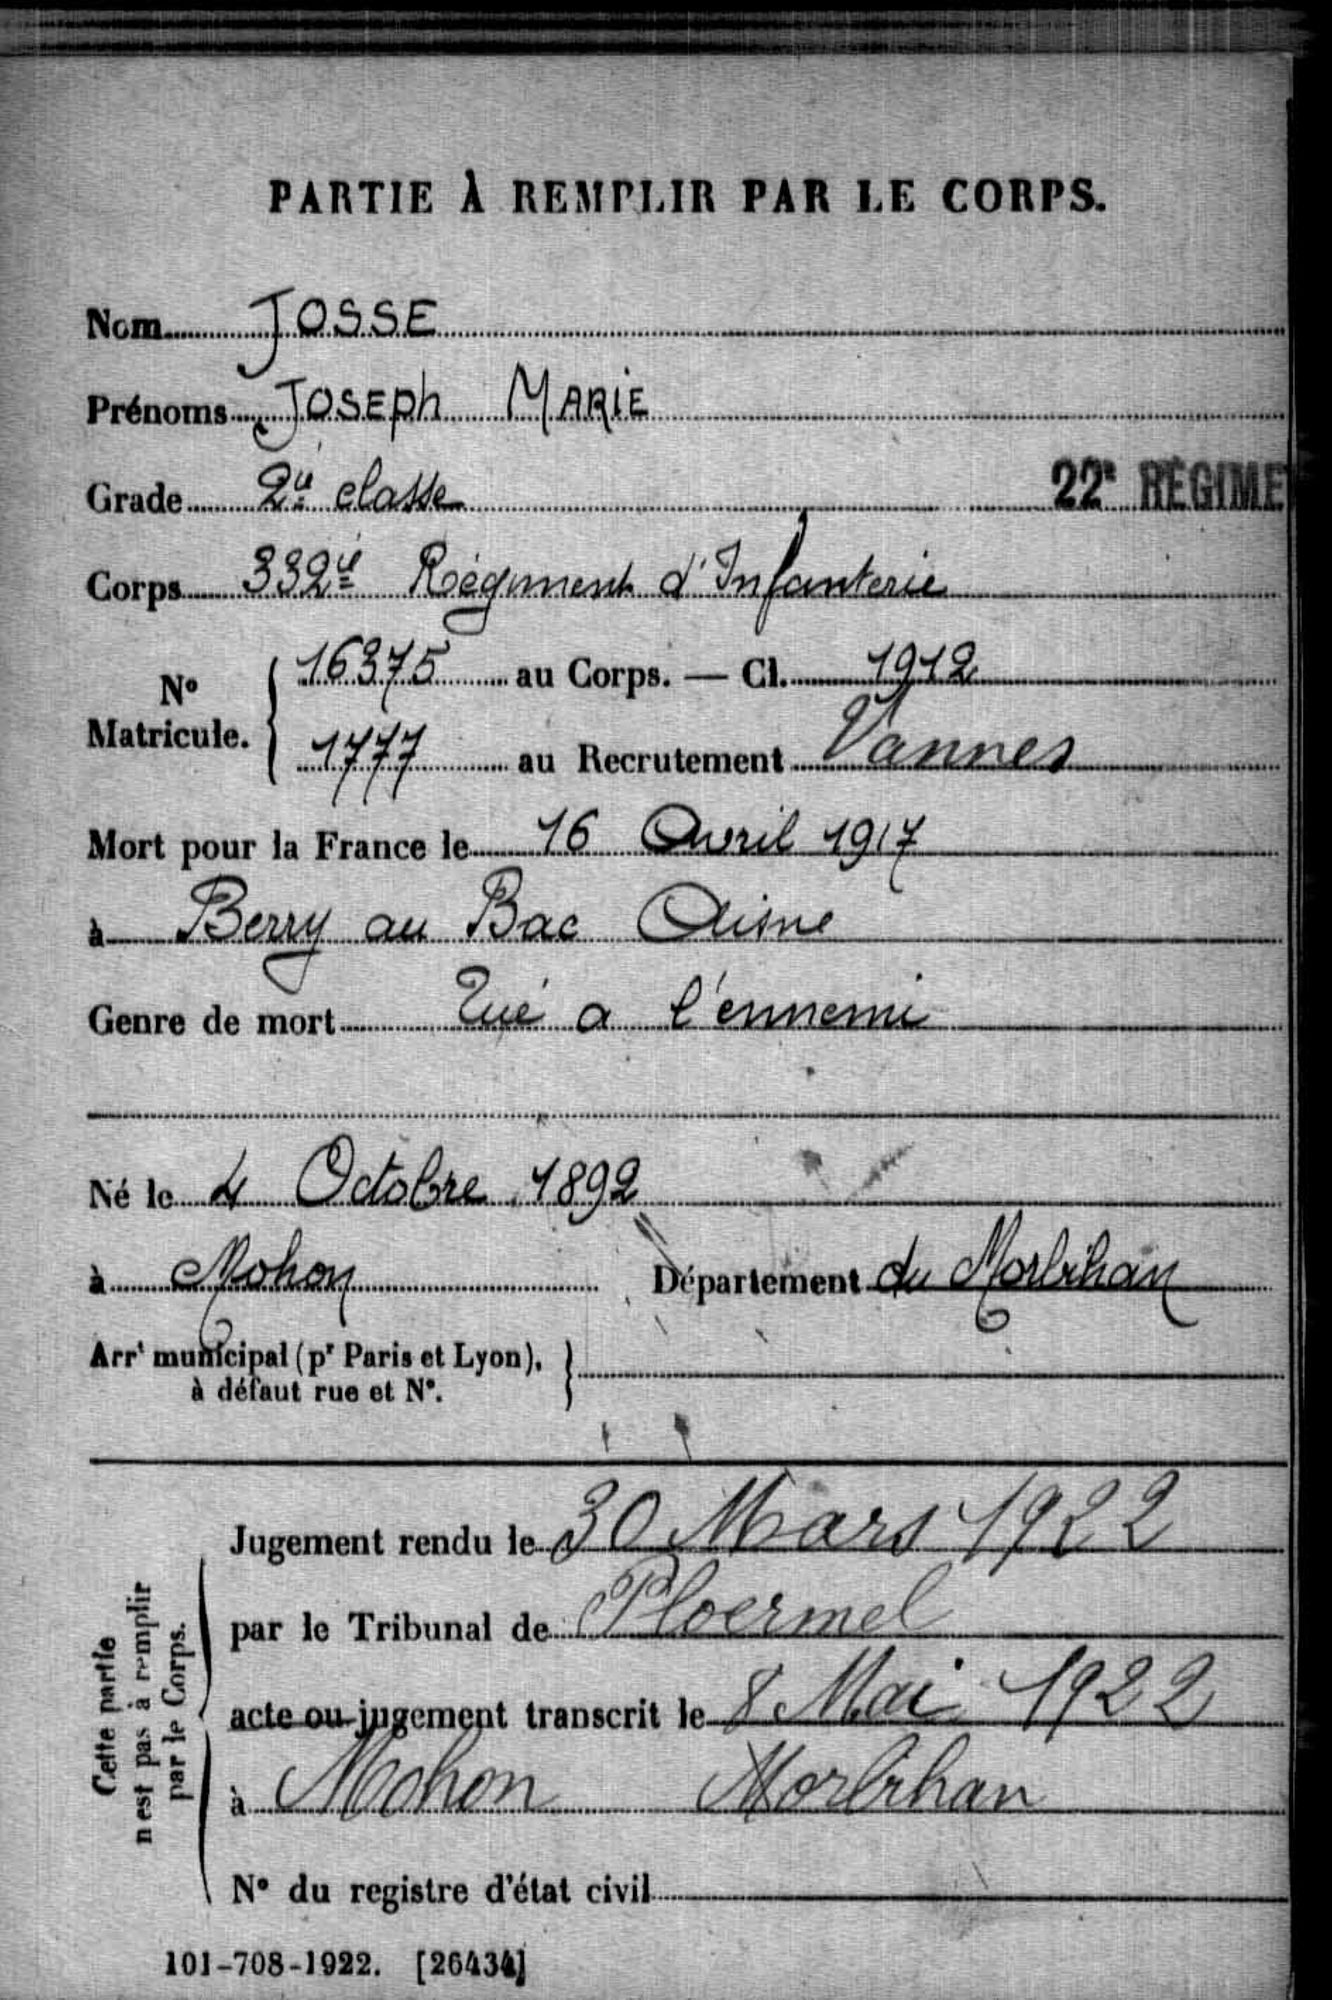 PARTIE À REMPLIR PAR LE CORPS.
Nom JOSSE
Prénoms JOSEPh MARIE
Grade 2e classe
22e RÉGIME
Corps 332e Régiment d'Infanterie
No Matricule. 16375 au Corps. — Cl. 1912
1777 au Recrutement Vannes
Mort pour la France le 16 Avril 1917
à Berry au Bac Aisne
Genre de mort Tué a l'ennemi
Né le 4 Octobre 1892
à Mohon Département du Morbihan
Arrt municipal (pr Paris et Lyon),
à défaut rue et No.
Cette partie
n'est pas à remplir
par le Corps.
Jugement rendu le 30 Mars 1922
par le Tribunal de Ploermel
acte ou jugement transcrit le 8 Mai 1922
à Mohon Morbihan
No du registre d'état civil
101-708-1922. [26434]